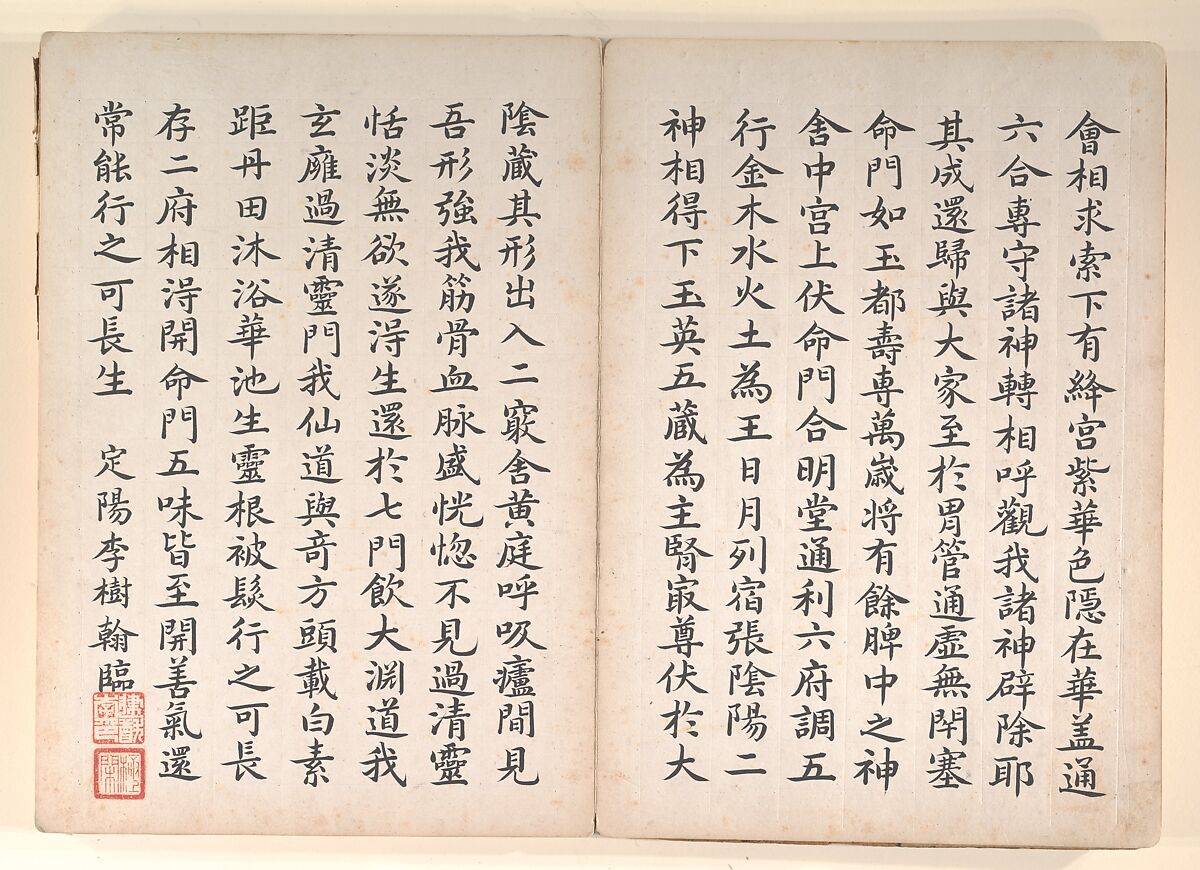 會相求索下有絳宮紫華色隱在華盖通
六合專守諸神轉相呼觀我諸神辟除耶
其成還歸與大家至於胃管通虛無閇塞
命門如玉都壽専萬嵗将有餘脾中之神
舎中宮上伏命門合明堂通利六府調五
行金木水火土為王日月列宿張陰陽二
神相得下玉英五蔵為主腎㝡尊伏於大
陰蔵其形出入二竅舎黃庭呼吸廬間見
吾形強我筋骨血脉盛恍惚不見過清靈
恬淡無欲遂淂生還於七門飲大渊道我
玄廱過清靈門我仙道與竒方頭載白素
距丹田沐浴華池生靈根被髮行之可長
存二府相淂開命門五味皆至開善氣還
常能行之可長生　定陽李樹翰臨